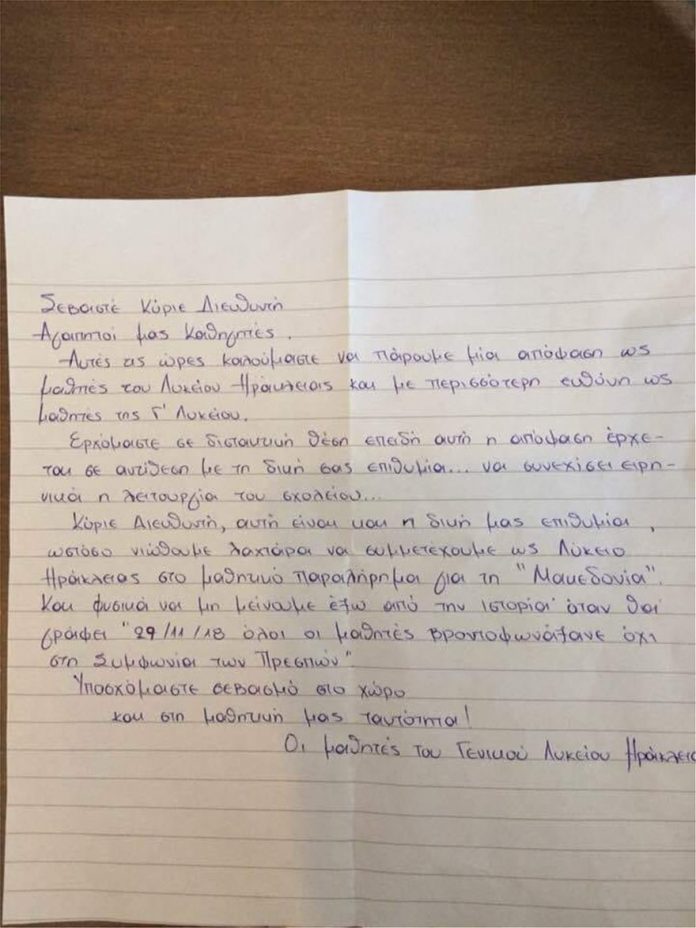 Σεβαστέ Κύριε Διευθυντή
Αγαπητοί μας Καθηγητές.
Αυτές τις ώρες καλούμαστε να πάρουμε μία απόφαση ως
μαθητές του Λυκείου Ηράκλειας και με περισσότερη ευθύνη ως
μαθητές της Γ' Λυκείου.
Ερχόμαστε σε δισταυτική θέση επειδή αυτή η απόφαση έρχε-
ται σε αντίθεση με τη δική σας επιθυμία... να συνεχίσει ειρη-
νικά η λειτουργία του σχολείου...
Κύριε Διευθυντή, αυτή είναι και η δική μας επιθυμία,
ωστόσο νιώθουμε λαχτάρα να συμμετέχουμε ως Λύκειο
Ηράκλειας στο μαθητικό παραλήρημα για τη "Μακεδονία".
Και φυσικά να μη μείνουμε έξω από την ιστορία όταν θα
γράφει "29/11/18 όλοι οι μαθητές βροντοφωνάξανε όχι
στη Συμφωνία των Πρεσπών".
Υποσχόμαστε σεβασμό στο χώρο
και στη μαθητική μας ταυτότητα!
Οι μαθητές του Γενικού Λυκείου Ηράκλειας